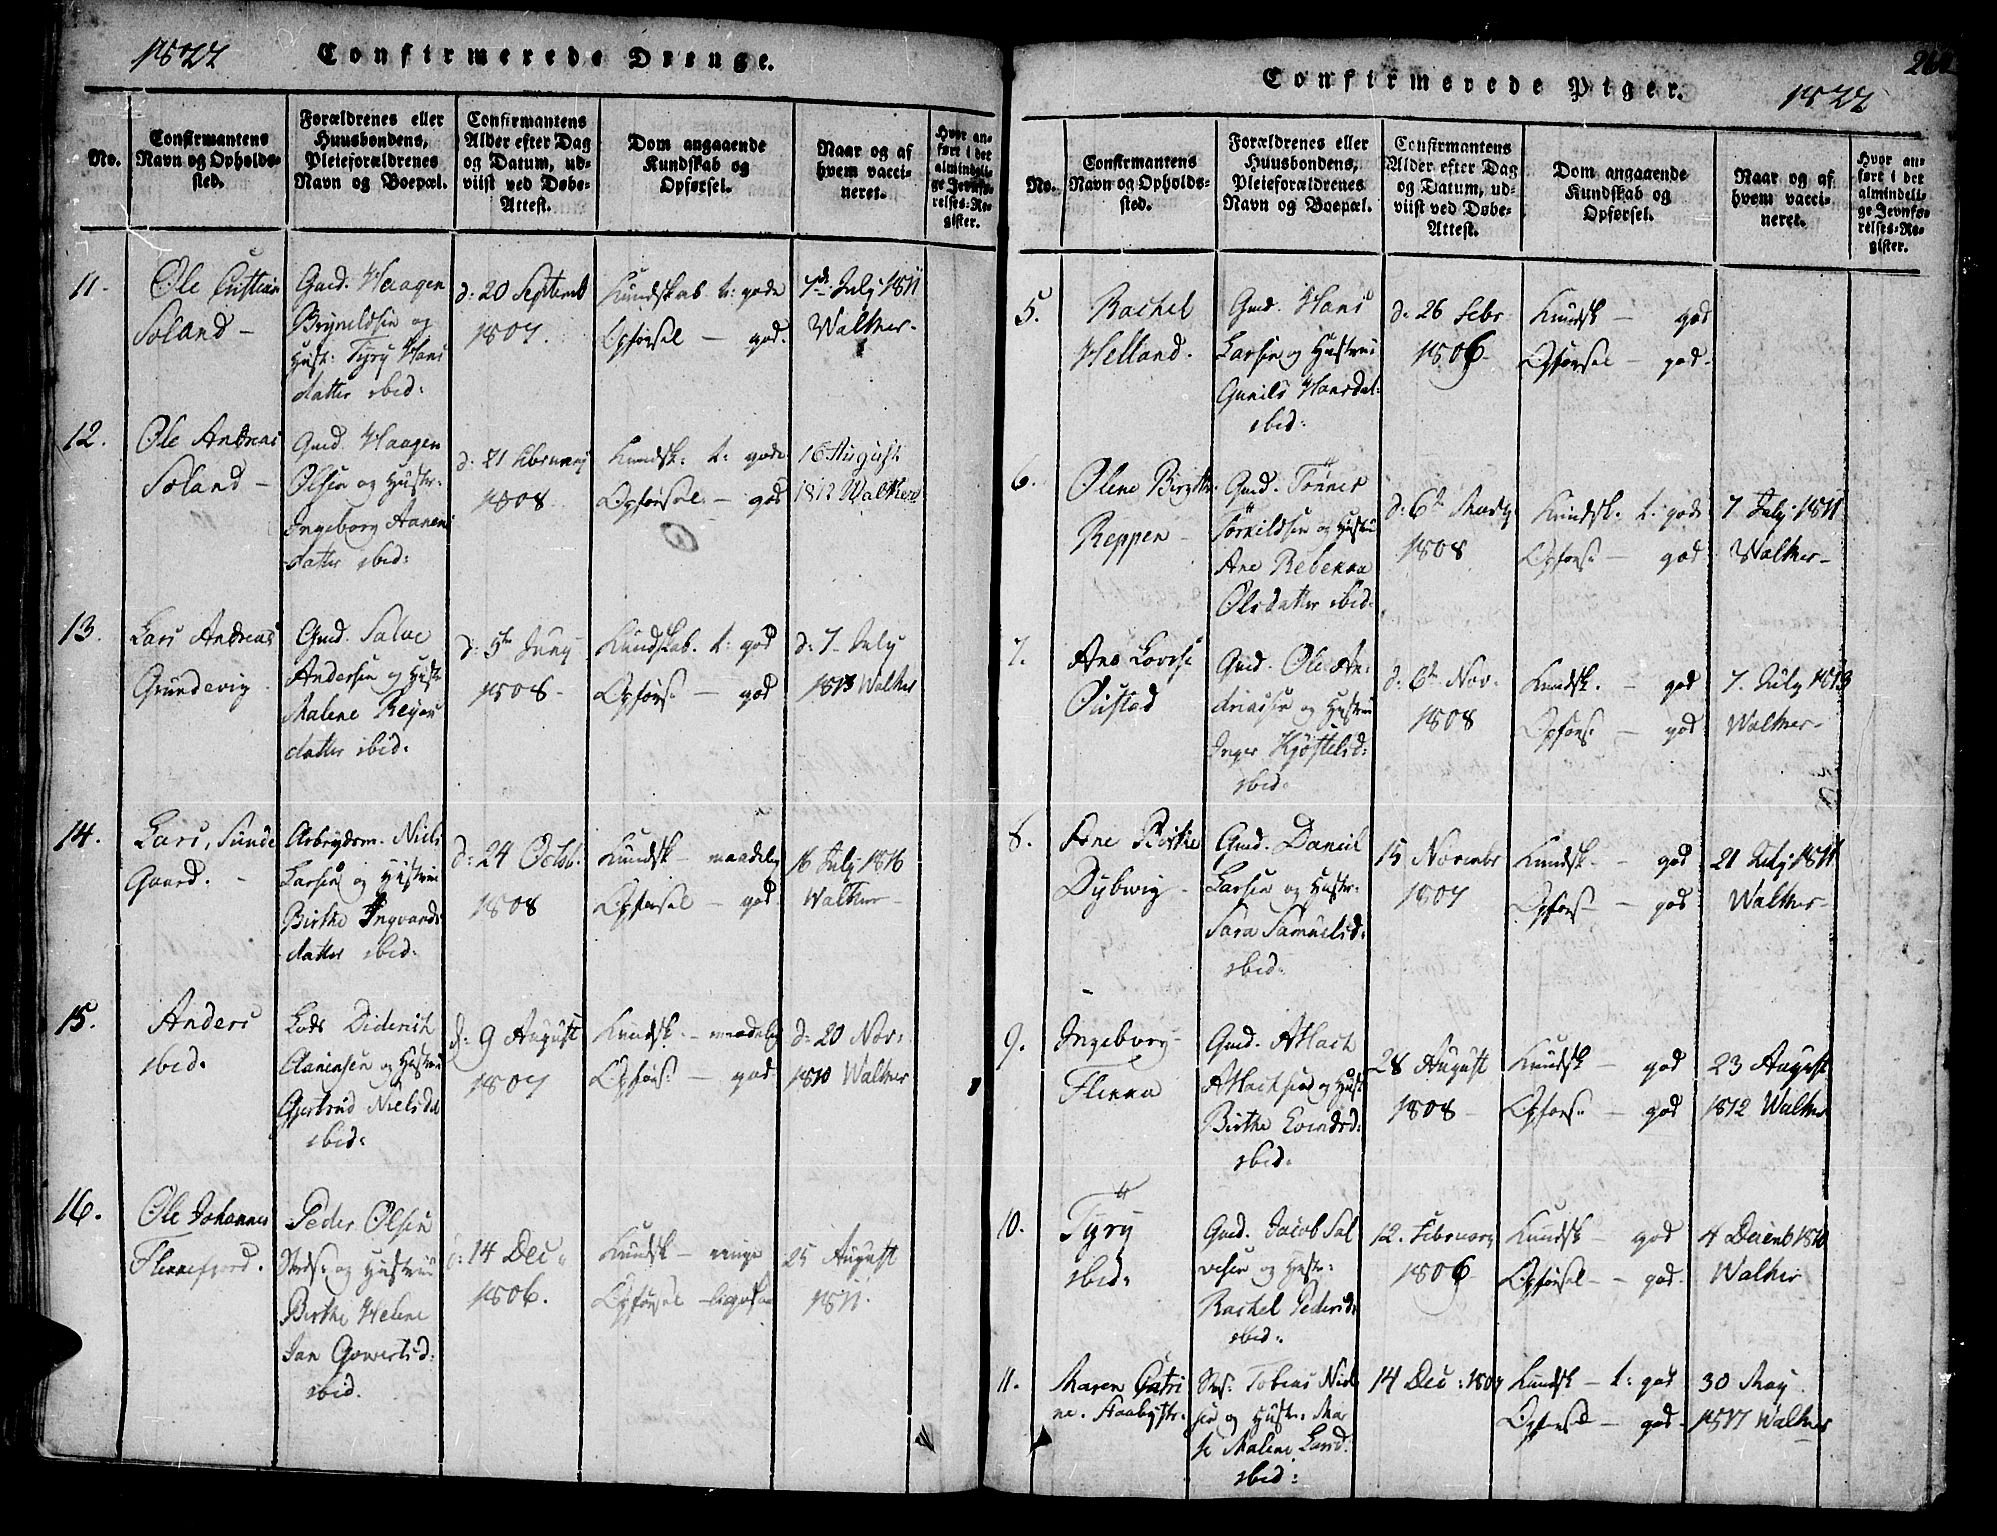 1822
Confirmerede Drenge.
No.
Confirmantens
Navn og Opholds-
sted.
Forældrenes eller
Huusbondens,
Pleieforældrenes
Navn og Boepæl.
Confirmantens
Alder efter Dag
og Datum, ud-
viist ved Døbe-
Attest.
Dom angaaende
Kundskab og
Opførsel.
Naar og af
hvem vacci-
neret.
Hvor an-
ført i det
almindeli-
ge Jevnfø-
relses-Re-
gister.
11.
Ole Cristian
Soland -
Gmd. Haagen
Bryneldsen og
Hust: Tyry Hans
datter ibid:
d: 20 Septemb
1807.
Kundskab t: gode
Opførsel - god.
7de July 1811
Walther-
12.
Ole Andreas
Soland -
Gmd. Haagen
Olsen og Hustr:
Ingeborg Aanen
datter ibid:
d: 21 Februarj
1808
Kundsk: t: gode
Opførsel - god
16 August
1812 Walther
13.
Lars Andreas
Grundevig.
Gmd. Salve
Andersen og Hustr
Malene Reyer
datter ibid:
d: 5te Juny
1808-
Kundskab. t: god
Opførs: - god
d: 7- July
1813 Walther
14.
Lars, Sunde
Gaard. -
Arbeydsm. Niels
Larsen og Hustrue
Birthe Ingvands
datter ibid:
d: 24 Octob.
1808
Kundsk - maadelig
Opførsel - god
16 July 1816
Walther-
15.
Anders
ibid.
Lods Diderich
Clausen og Hustrue
Gjertrud Nielsdat
ibid:
d: 9 August
1807
Kundsk. - maadelig
Opførs: - god
d: 20 Nov:
1810 Walther
16.
Ole Johannes
Flekkefjord.
Peder Olsen
og Hustrue
Birthe Helene
Jan Gowertsd:
ibid.
d: 14 Dec.
1806.
Kundsk - ringe
Opførsel - ligesaa
25 August
1811.
Confirmerede Piger.
1822
No.
Confirmantens
Navn og Opholds-
sted.
Forældrenes eller
Huusbondens,
Pleieforældrenes
Navn og Boepæl.
Confirmantens
Alder efter Dag
og Datum, ud-
viist ved Døbe-
Attest.
Dom angaaende
Kundskab og
Opførsel.
Naar og af
hvem vacci-
neret.
Hvor an-
ført i det
almindeli-
ge Jevnfø-
relses-Re-
gister.
5.
Rachel
Helland.
Gmd. Hans
Larsen og Hustrue
Gunild Hansdat:
ibid:
d: 26 Febr
1806-
Kundsk - god
Opførsel - god-
6.
Olene Birgitte
Reppen -
Gmd. Tönnes
Törkildsen og Hustru
Ane Rebekka
Olsdatter ibid:
d: 6te Marty
1808
Kundsk. t: gode
Opførs: - god
7 July 1811
Walther-
7.
Ane Lovise
Olistad
Gmd. Ole An-
driasen og Hustrue
Inger Kjøstelsd:
ibid:
d: 6te Nov.
1808
Kundsk. - god
Opførs: - god
7. July 1813
Walther-
8.
Ane Birkie
Dybwig-
Gmd. Daniel
Larsen og Hustr:
Sara Samuelsd:
ibid:
15 Novembr
1807
Kundsk. - god
Opførs - god
21 July 1811
Walther-
9.
Ingeborg
Flekka
Gmd. Atlach
Atlachsen og Hust
Birthe Evindsd:
ibid:
28 August
1808-
Kundsk - god
Opførs: - god
23 August
1812 Walther
10.
Tyry
ibid:
Gmd. Jacob Sal
vesen og Hustr:
Rachel Pedersd:
ibid:
12. February
1806
Kundsk - god
Opførsel - god-
4 Decemb 1810
Walther
11.
Maren Catri
ne.
Tobias Niel
sen og Hustr: Mar
te Malene Larsd:
ibid:
14 Dec: 1807
Kundsk - t: god
Opførsel - god-
30 May
1817 Walther